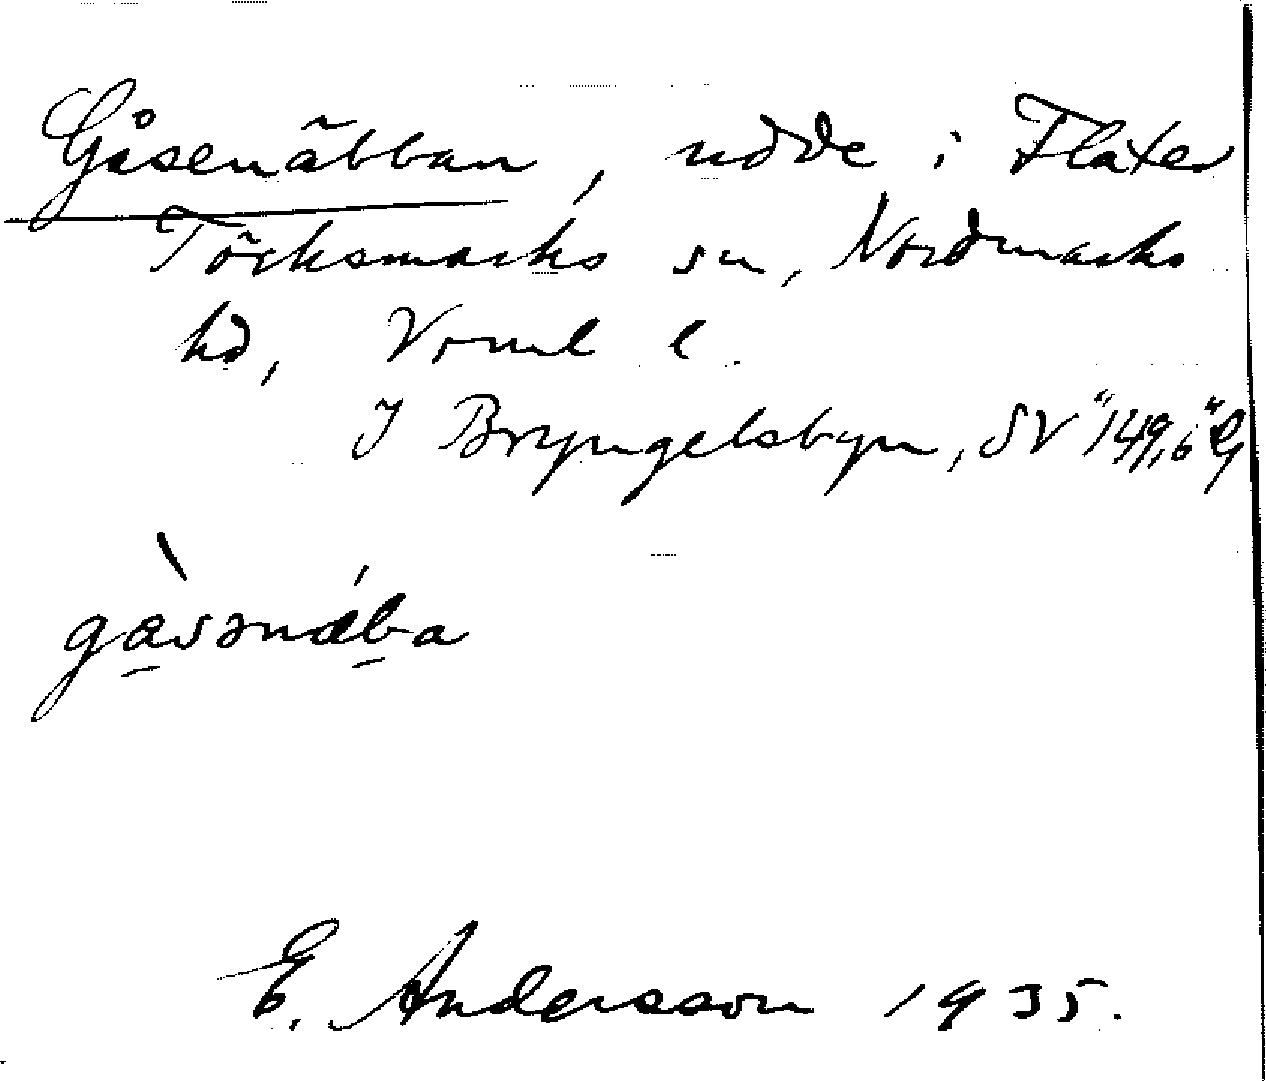 Gåsenäbban, udde i Flaxen
Töcksmarks sn, Nordmarks
hd, Vrml l.
I Bryngelsbyn, SV "149,6"
gåsənäba
E. Andersson 1935.